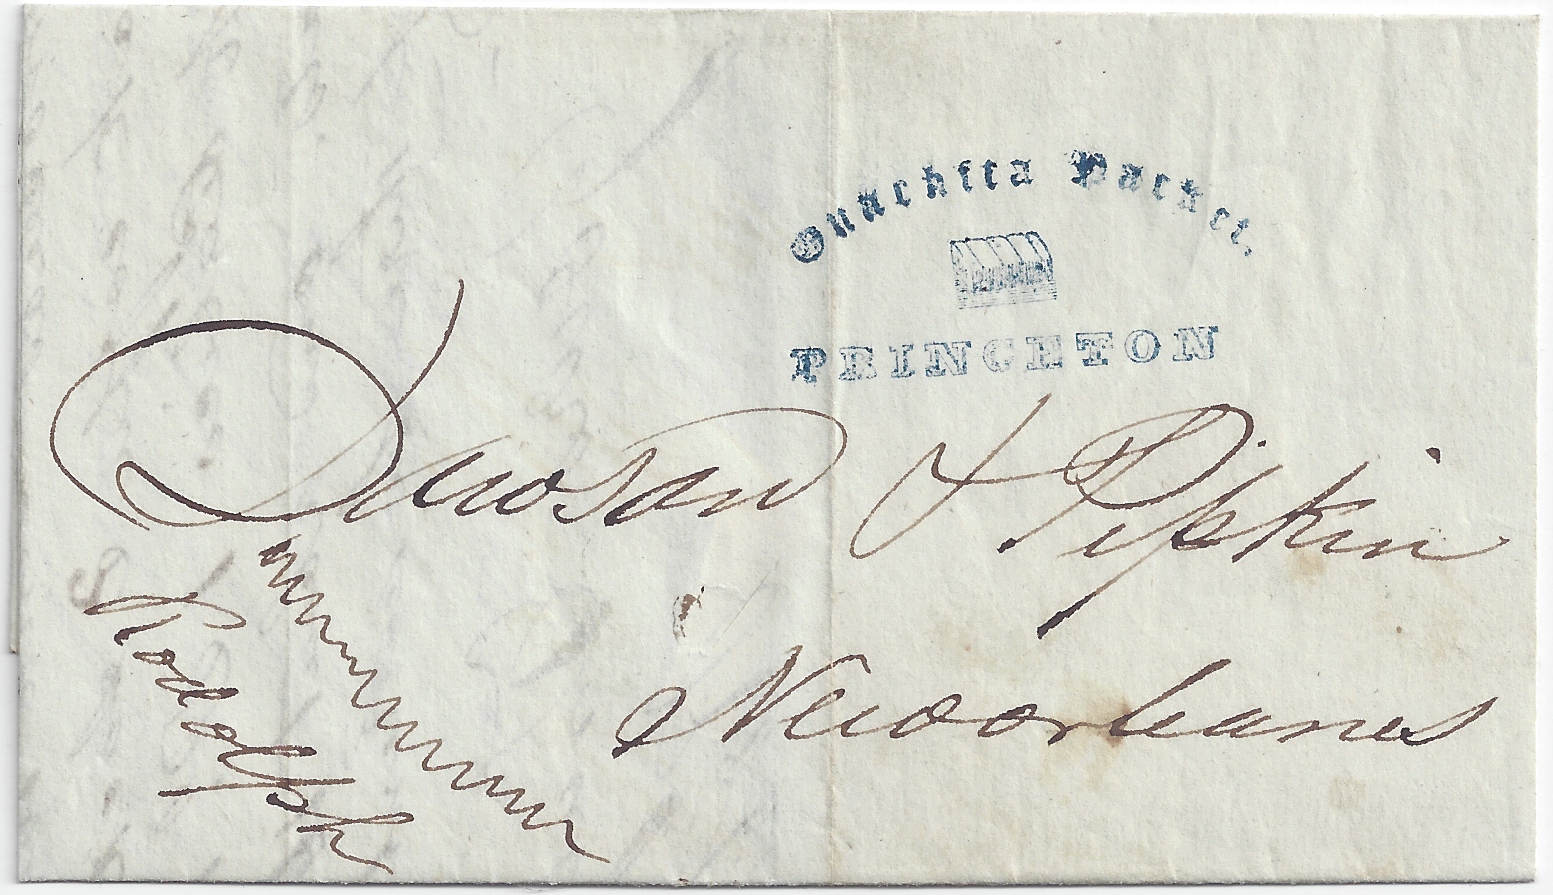 Ouachita Packet,
PRINCETON
Dawson & Pipkin
Neworleans
Rodolph